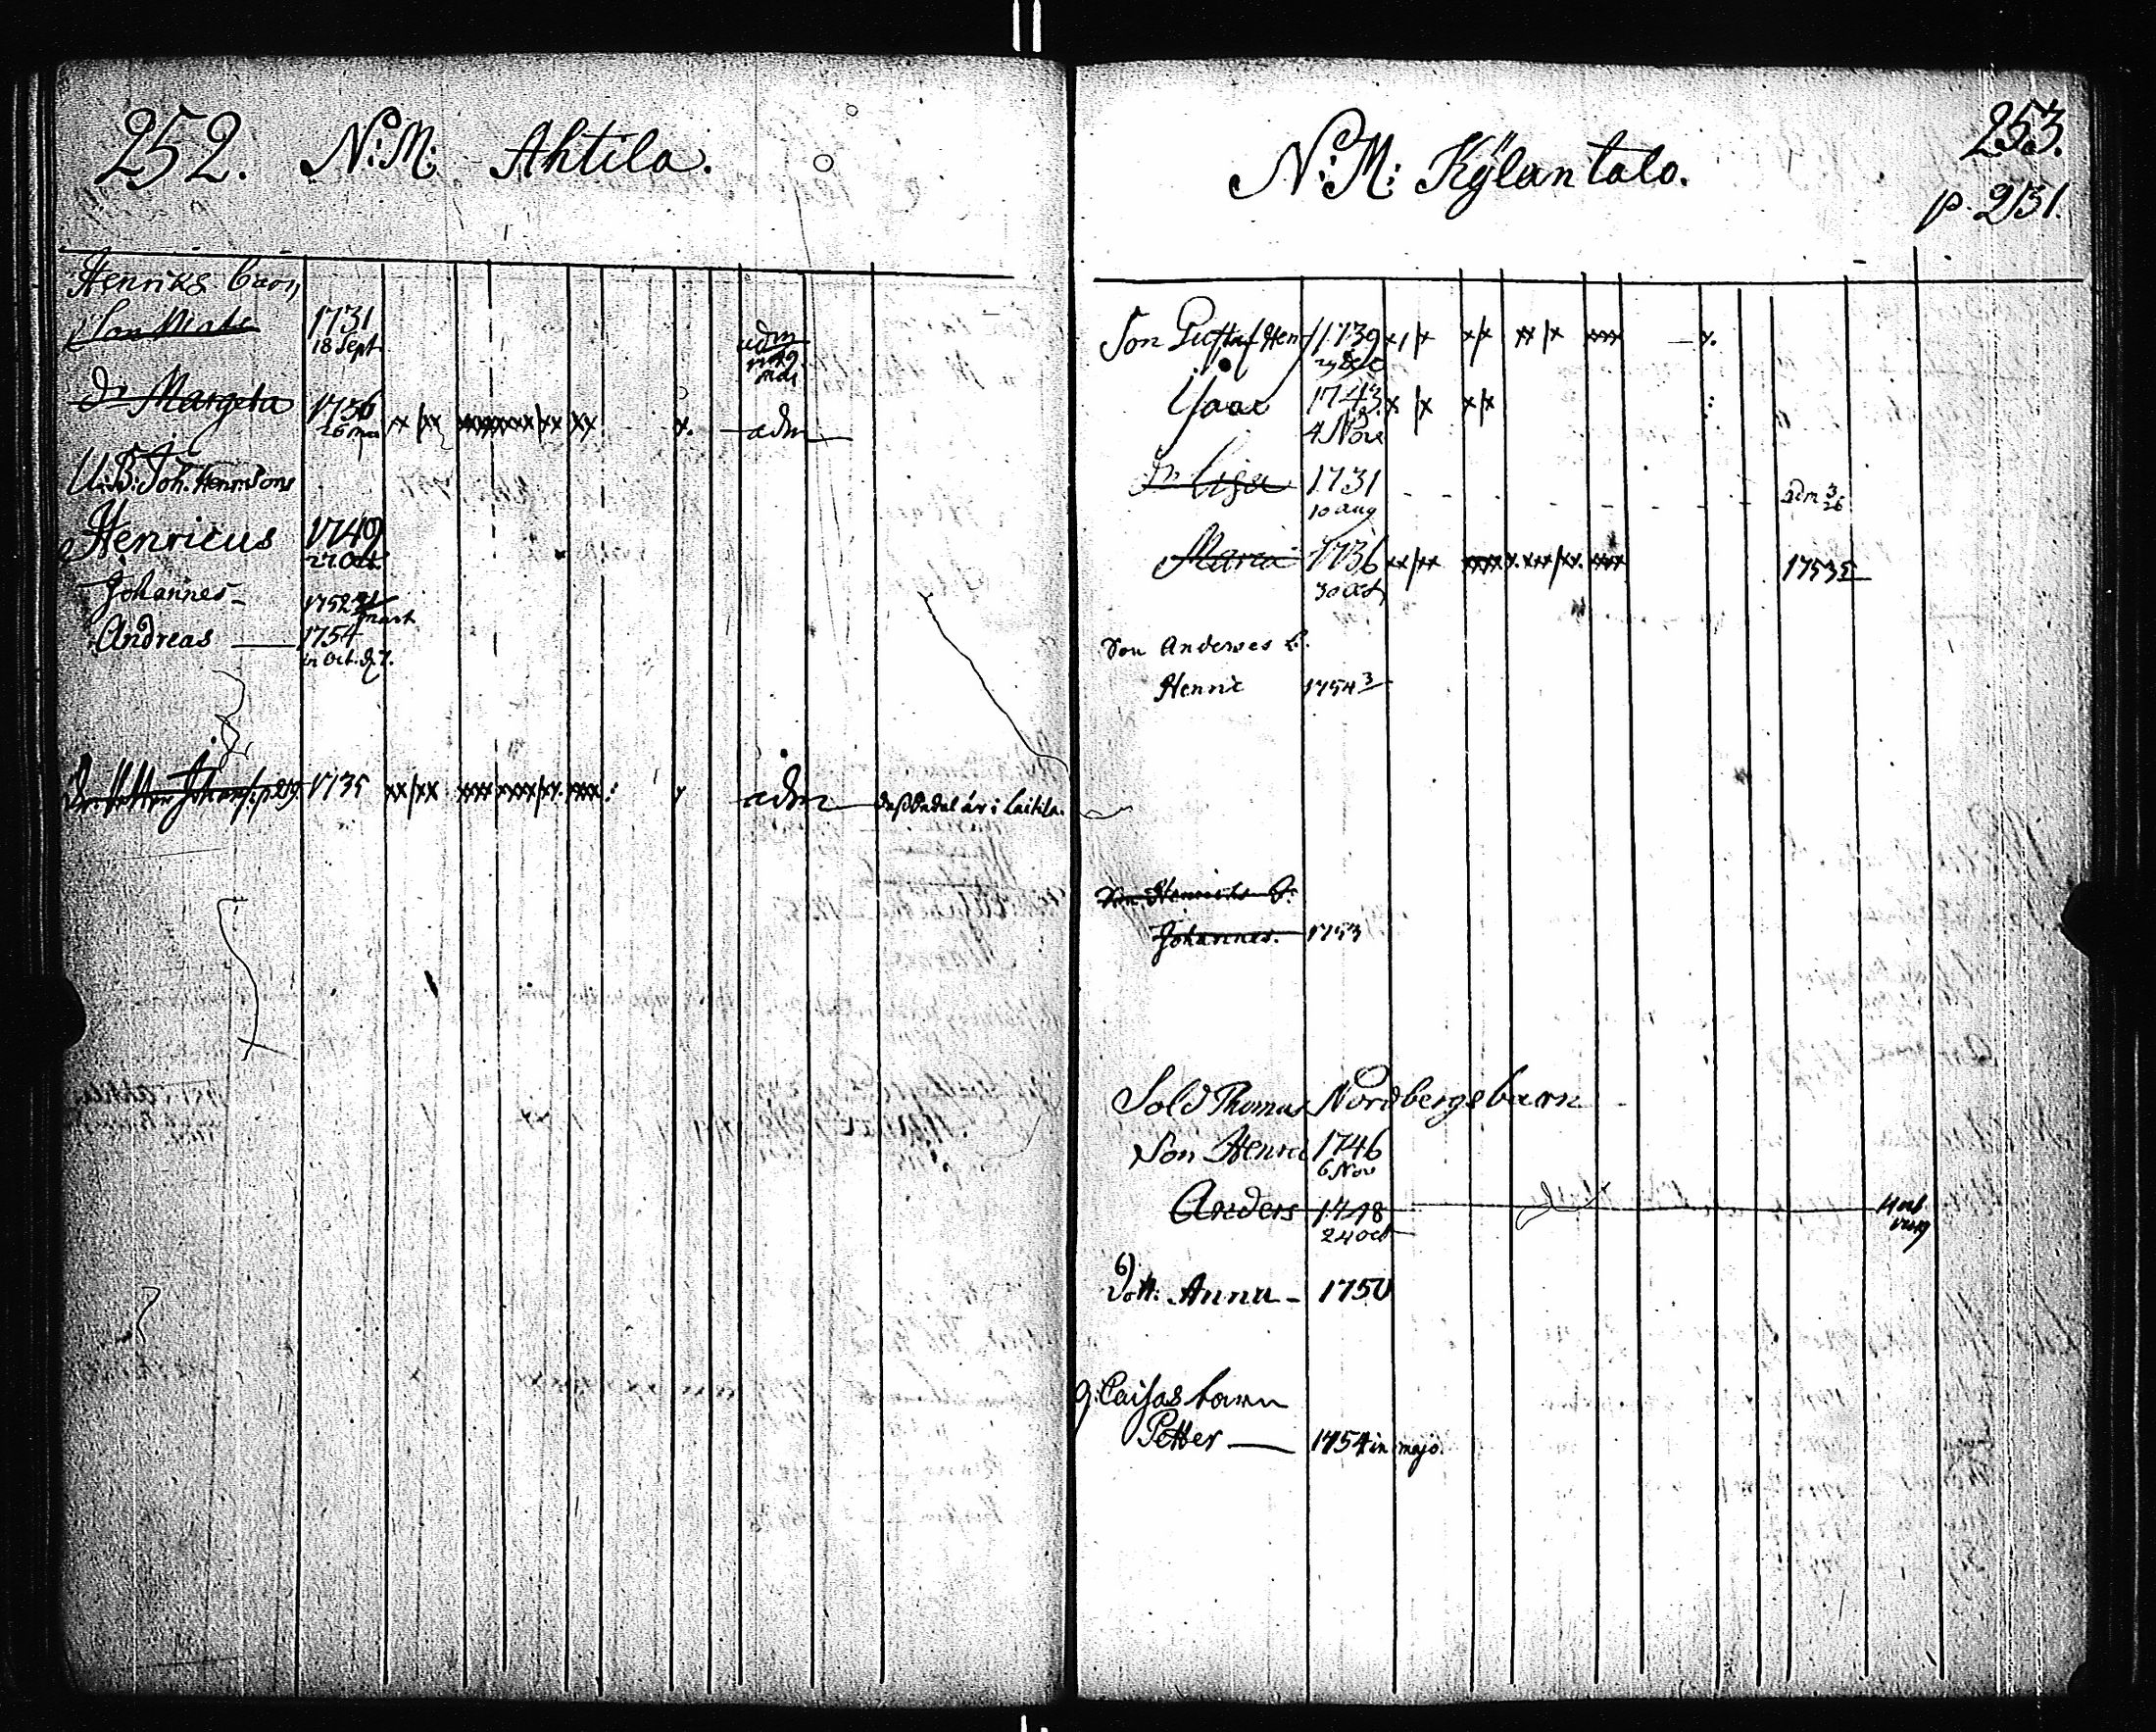 252. N:M: Ahtila.
Henriks barn
Son Matts 1731 adm
18 Sept
dr Margeta 1736 xx/xx xx/xx xx x. adm
26
U.B. Joh. Henrissons
Henricus 1749
27. Oct.
Johannes 1752
mart
Andreas 1754
in Oct. d. 7.
Johans 1735 xx/xx xxxx xxxx/xx. xxxx : adm är i Laitila.
253.
N:M: Kÿlän talo.
p. 231.
Son Gustaf Hen 1739 x/x x/x xx/x xxx x.
29 Dec
Isaac 1743 x/x x/x
4 Nov
Dr Lisa 1731 adm 3/26
10 aug
Maria 1736 xx/xx xxxx xxx/xx. xxxx 1753
30 Oct
Son Anderses b.
Henric 1754 3
Son Henrichs b:
Johannes. 1753
Sold Thomas Nordbergs barn
Son Henric 1746
6 Nov
Anders 1748
24 oct
Dott. Anna - 1750
q: Caisas barn
Petter 1754 in majo.